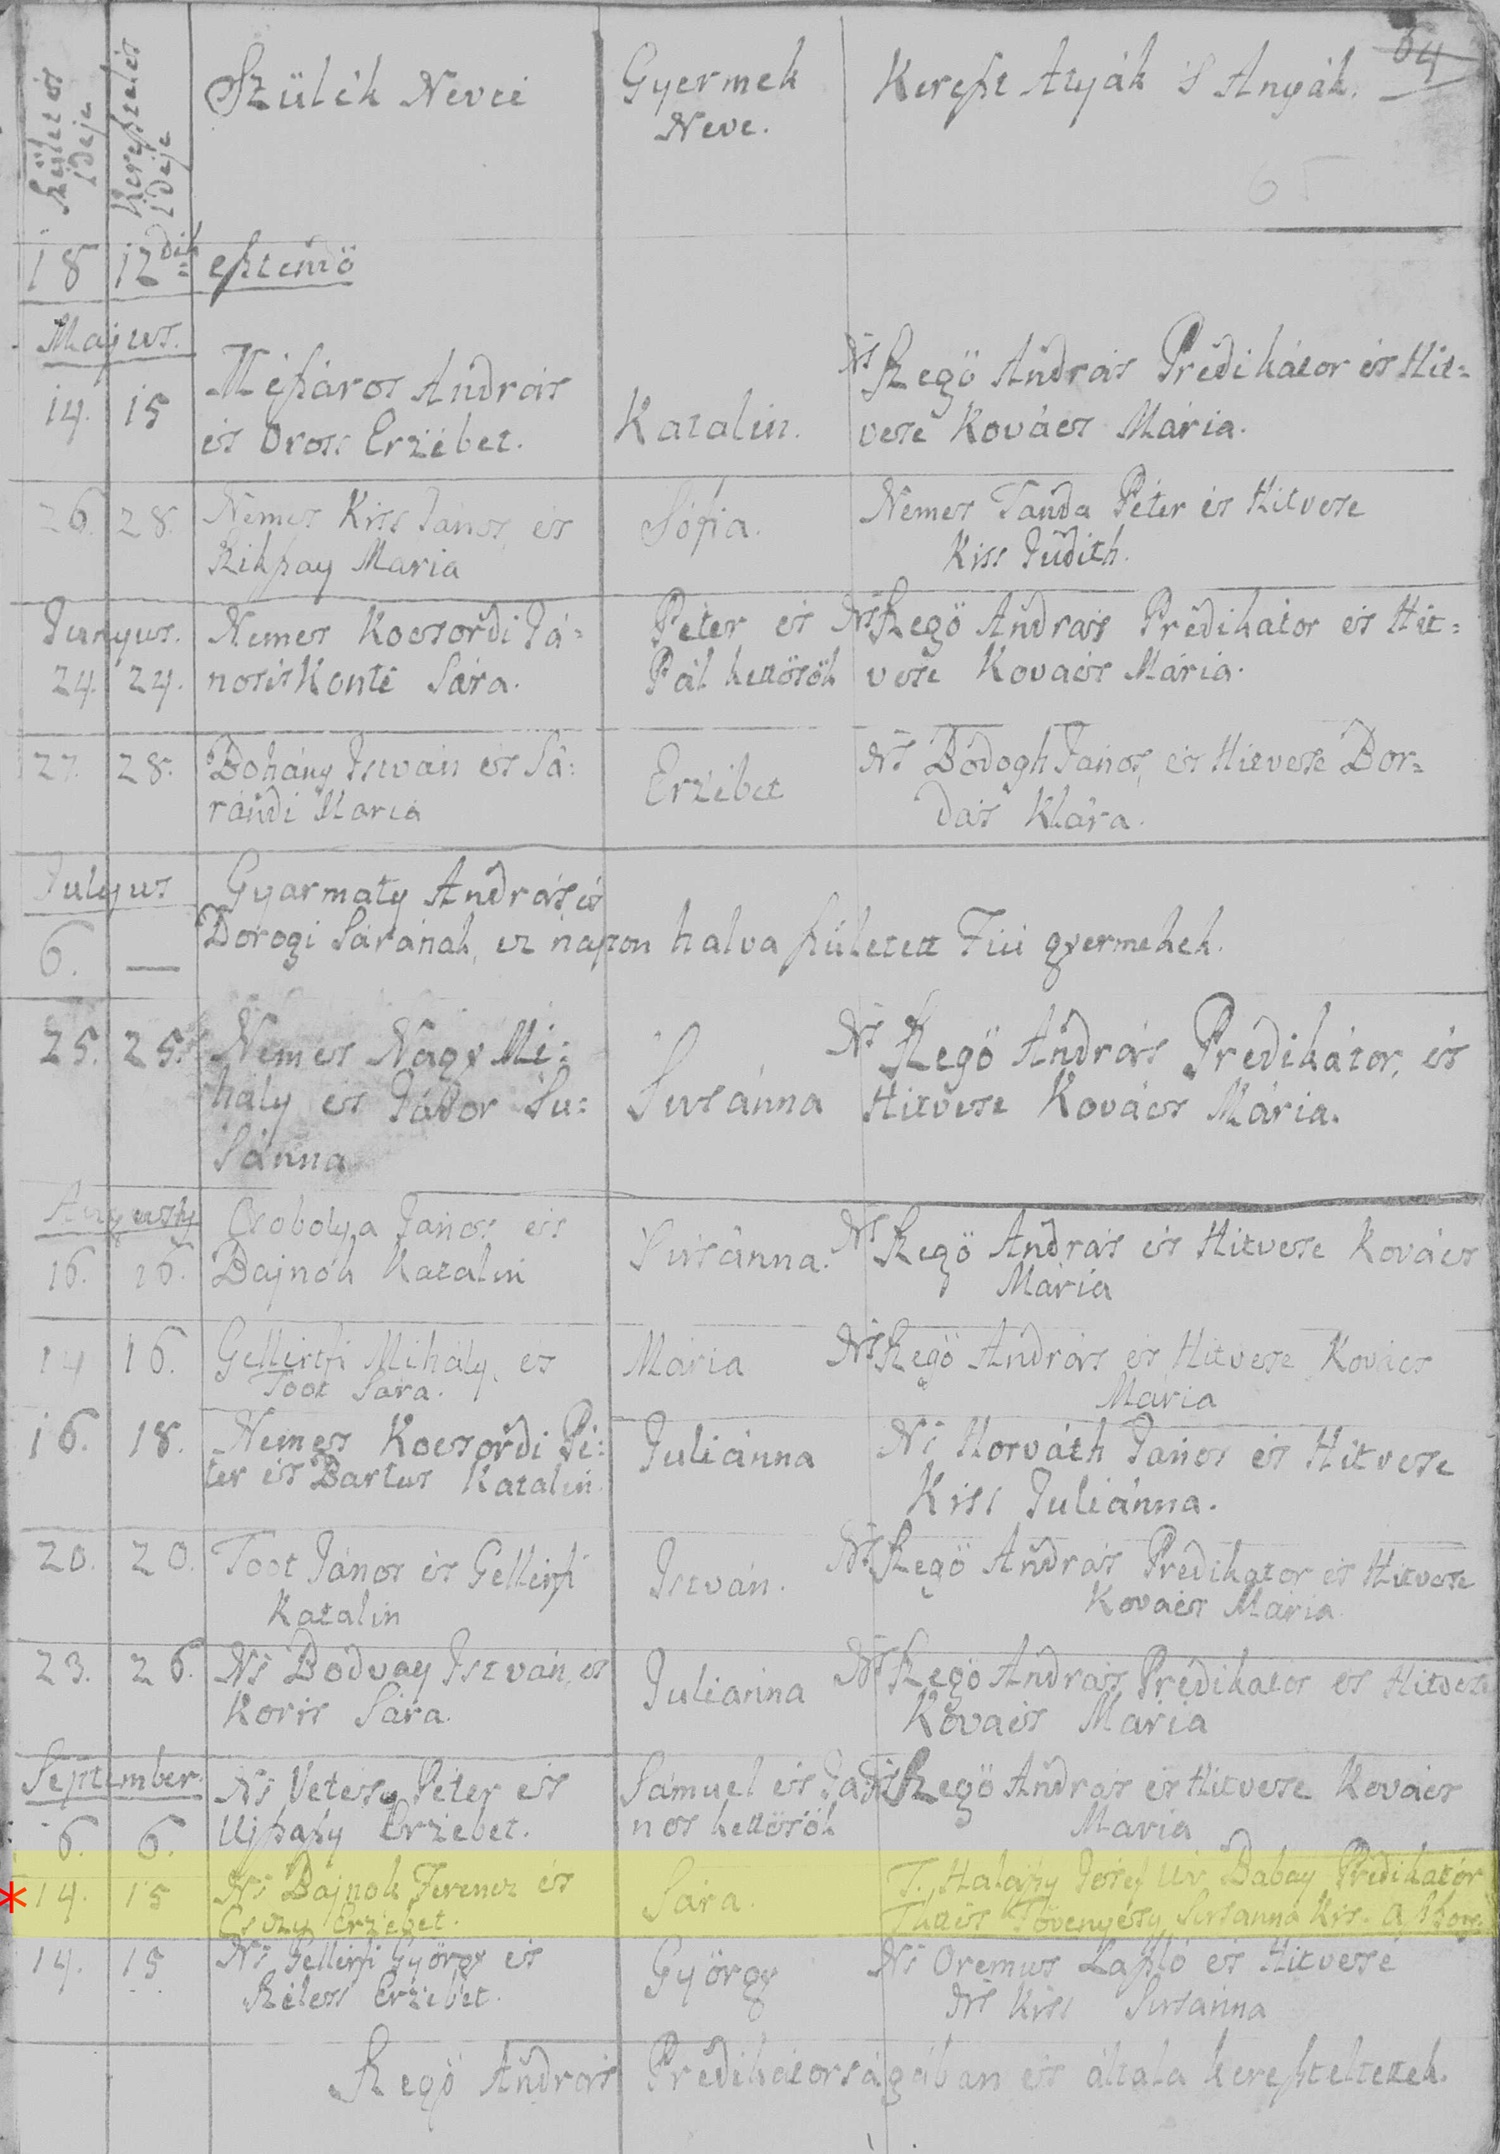 64
Születés ideje
Keresztelés ideje
Szülék Nevei
Gyermek Neve.
Kereszt Atyák 's Anyák.
18 12dik esztendö
Majus.
14. 15 Mészáros András és Orosz Erzébet. Katalin. Ns Szegö András Prédikátor és Hit=
vese Kovács Mária.
26. 28. Nemes Kiss János és Szikszay Maria Sófia. Nemes Tanda Péter és Hitvese
Kiss Judith.
Junyus.
24. 24. Nemes Kocsordi Já=
nos és Konti Sára. Péter és Pál kettösök Ns Szegö András Prédikátor és Hit=
vese Kovács Mária.
27. 28. Bohány István és Sá=
rándi Maria Erzébet Ns Bodogh János, és Hitvese Bor=
dás Klára.
Julyus
6. — Gyarmaty András és
Dorogi Sárának, ez napon halva született Fiú gyermekek.
25. 25. Nemes Nagy Mi=
hály és Gábor Su=
sánna Susánna Ns Szegö András Prédikátor, és
Hitvese Kovács Mária.
16. 16. Csobolya János és
Bajnok Katalin Susánna. Ns Szegö András és Hitvese Kovács
Mária
14 16. Gellérfi Mihály, és
Toot Sára. Mária Ns Szegö András és Hitvese Kovács
Mária
16. 18. Nemes Kocsordi Pé=
ter és Bartus Katalin. Juliánna Ns Horváth János és Hitvese
Kiss Juliánna.
20. 20. Toot János és Gellérfi
Katalin István. Ns Szegö András Prédikátor és Hitvese
Kovács Mária
23. 26. Ns Bodvay István, és
Koris Sára. Juliánna Ns Szegö András Prédikátor és Hitvese
Kovács Maria
September.
6. 6. Ns Vetésy Péter és
Ujfaly Erzébet. Sámuel és Já=
nos kettösök Ns Szegö András és Hitvese Kovács
Maria
* 14. 15 Ns Bajnok Ferencz és
Erzébet. Sára. T. Halászy Josef Ur Babay Prédikátor
Susánna Kis Aszony.
14. 15 Ns Gellérfi György és
Széless Erzébet. György Ns Oremus László és Hitvese
Ns Kiss Susánna
Szegö András Prédikátorságában és általa kereszteltettek.